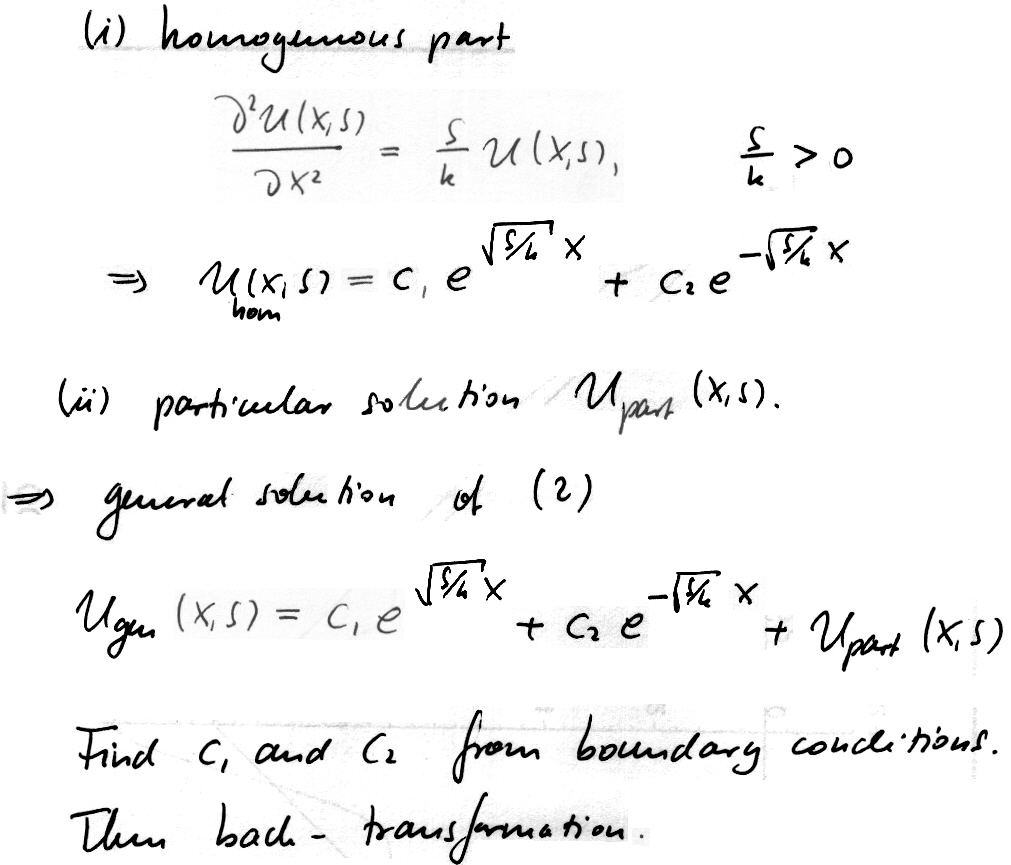 (i) homogenous part
∂²U(x,s)/∂x² = s/k U(x,s), s/k > 0
⇒ U_hom(x,s) = c₁ e^{√(s/k) x} + c₂ e^{-√(s/k) x}
(ii) particular solution U_part (x,s).
⇒ general solution of (2)
U_gen (x,s) = c₁ e^{√(s/k) x} + c₂ e^{-√(s/k) x} + U_part (x,s)
Find c₁ and c₂ from boundary conditions.
Then back-transformation.